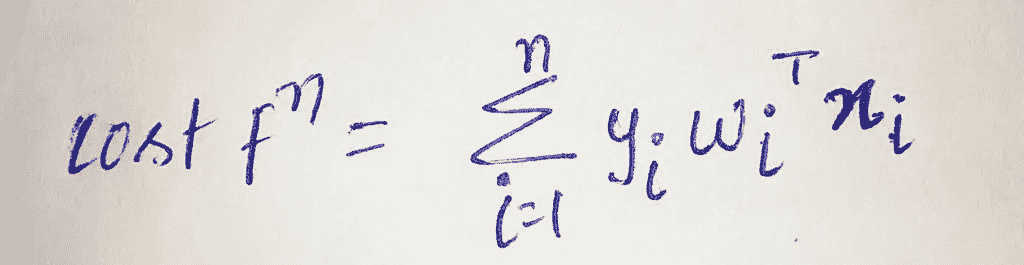 cost fⁿ = ∑ⁿᵢ₌₁ yᵢ wᵢᵀ xᵢ